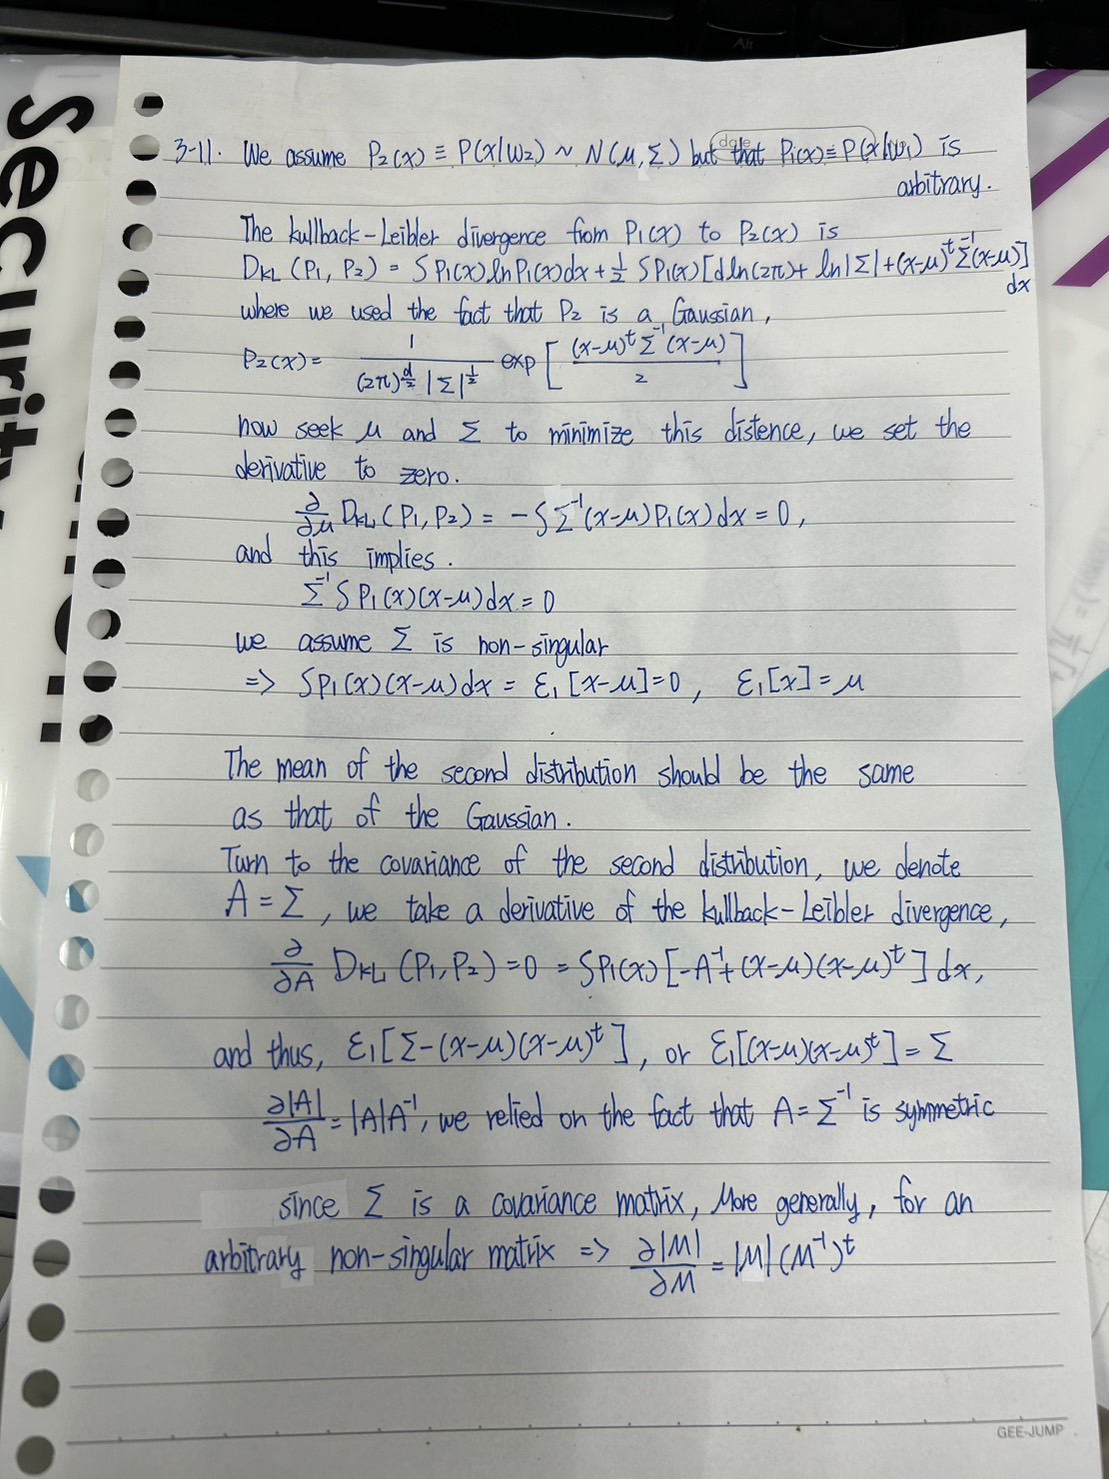 Alt
Security
date
3-11. We assume P₂(x) ≡ P(x|ω₂) ~ N(μ,Σ) but that P₁(x) ≡ P(x|ω₁) is
arbitrary.
The kullback-Leibler divergence from P₁(x) to P₂(x) is
D_KL (P₁, P₂) = ∫P₁(x) ln P₁(x)dx + ½ ∫P₁(x) [d ln(2π) + ln|Σ| + (x-μ)ᵗ Σ⁻¹(x-μ)]
dx
where we used the fact that P₂ is a Gaussian,
P₂(x) = 1 / ((2π)^(d/2) |Σ|^(1/2)) exp [ (x-μ)ᵗ Σ⁻¹ (x-μ) / 2 ]
now seek μ and Σ to minimize this distence, we set the
derivative to zero.
∂/∂μ D_KL (P₁, P₂) = -∫Σ⁻¹(x-μ)P₁(x)dx = 0,
and this implies.
Σ⁻¹ ∫P₁(x)(x-μ)dx = 0
we assume Σ is non-singular
=> ∫P₁(x)(x-μ)dx = ε₁[x-μ]=0, ε₁[x] = μ
The mean of the second distribution should be the same
as that of the Gaussian.
Turn to the covariance of the second distribution, we denote
A = Σ, we take a derivative of the kullback-Leibler divergence,
∂/∂A D_KL (P₁, P₂) = 0 = ∫P₁(x) [-A⁻¹ + (x-μ)(x-μ)ᵗ] dx,
and thus, ε₁[Σ-(x-μ)(x-μ)ᵗ], or ε₁[(x-μ)(x-μ)ᵗ] = Σ
∂|A|/∂A = |A|A⁻¹, we relied on the fact that A = Σ⁻¹ is symmetric
since Σ is a covariance matrix, More generally, for an
arbitrary non-singular matrix => ∂|M|/∂M = |M|(M⁻¹)ᵗ
GEE-JUMP